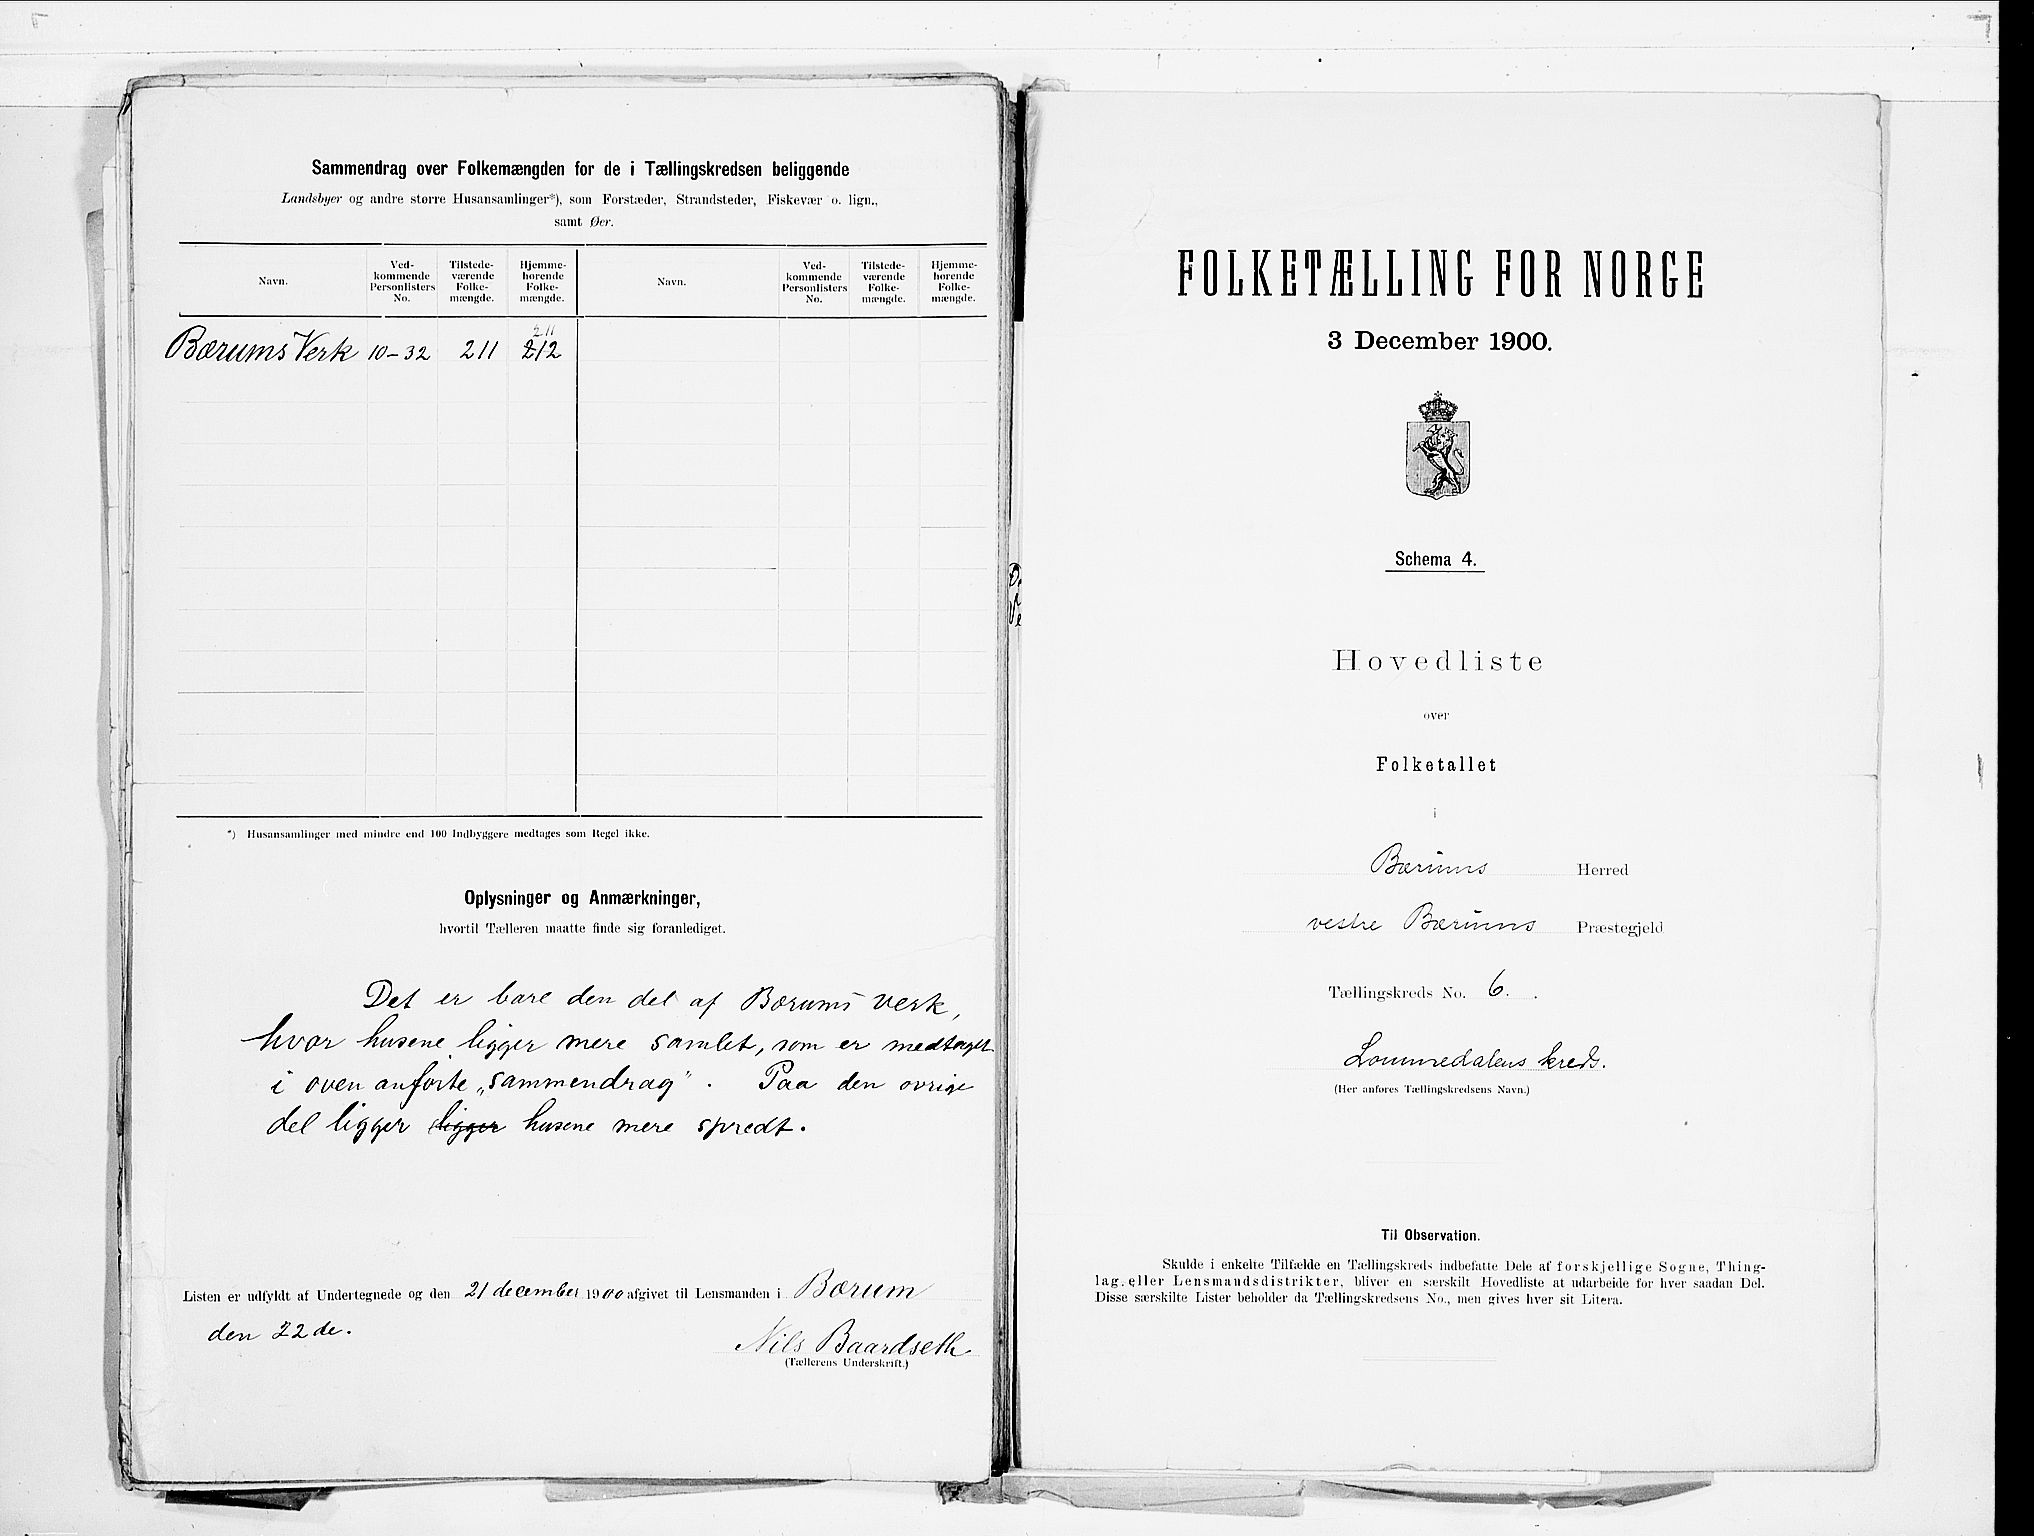 Sammendrag over Folkemængden for de i Tællingskredsen beliggende
Landsbyer og andre større Husansamlinger*), som Forstæder, Strandsteder, Fiskevær o. lign.,
samt Øer.
Navn.
Ved-
kommende
Personlisters
No.
Tilstede-
værende
Folke-
mængde.
Hjemme-
hørende
Folke-
mængde.
Navn.
Ved-
kommende
Personlisters
No.
Tilstede-
værende
Folke-
mængde.
Hjemme-
hørende
Folke-
mængde.
211
Bærums Verk 10-32 211 212
*) Husansamlinger med mindre end 100 Indbyggere medtages som Regel ikke.
Oplysninger og Anmærkninger,
hvortil Tælleren maatte finde sig foranlediget.
Det er bare den del af Bærums verk,
hvor husene ligger mere samlet, som er medtaget
i oven anførte „sammendrag". Paa den øvrige
del ligger ligger husene mere spredt.
Listen er udfyldt af Undertegnede og den 21 december 1900 afgivet til Lensmanden i Bærum
den 22 de.
Nils Baardseth
(Tællerens Underskrift.)
FOLKETÆLLING FOR NORGE
3 December 1900.
Schema 4.
Hovedliste
over
Folketallet
i
Bærums Herred
vestre Bærums Præstegjeld
Tællingskreds No. 6.
Lommedalens kreds.
(Her anføres Tællingskredsens Navn.)
Til Observation.
Skulde i enkelte Tilfælde en Tællingskreds indbefatte Dele af forskjellige Sogne, Thing-
lag, eller Lensmandsdistrikter, bliver en særskilt Hovedliste at udarbeide for hver saadan Del.
Disse særskilte Lister beholder da Tællingskredsens No., men gives hver sit Litera.